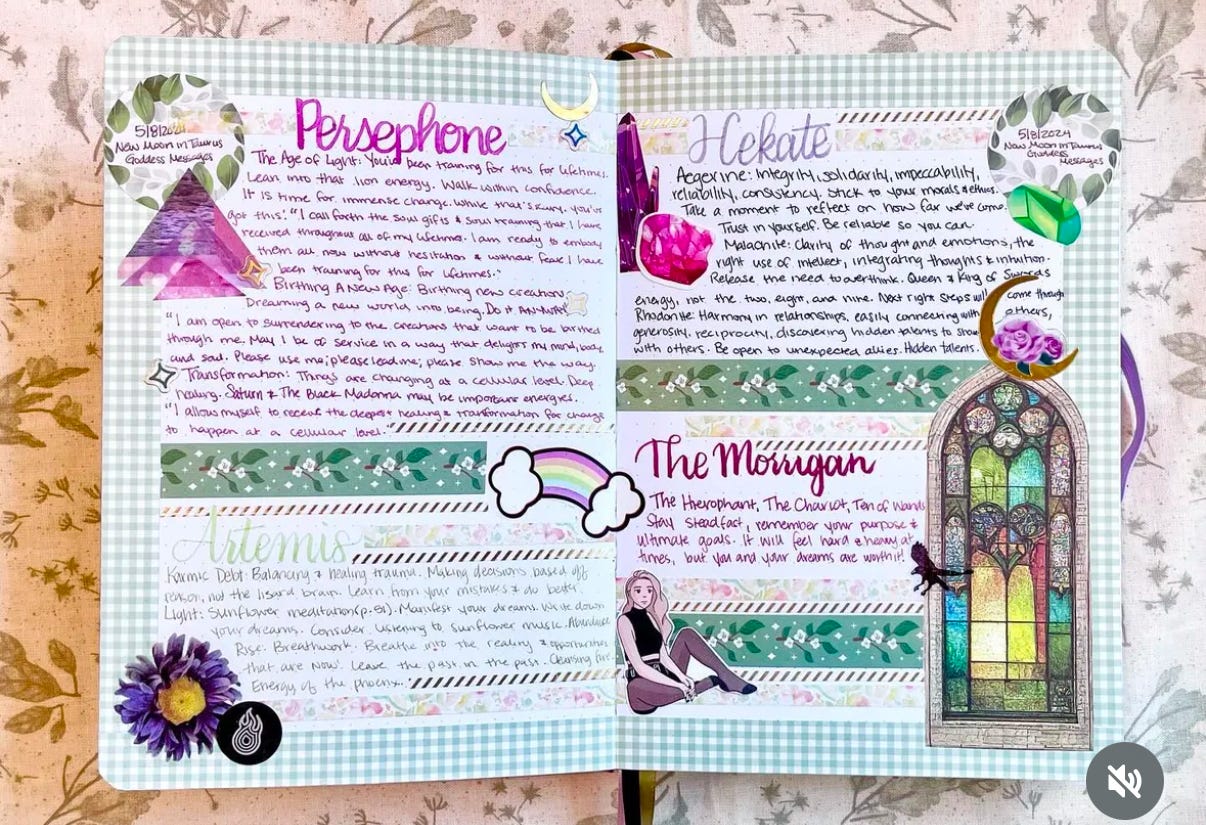 5/8/2024
New Moon in Taurus
Goddess Messages
Persephone
The Age of Light: You've been training for this for lifetimes.
Lean into that lion energy. Walk within confidence.
It is time for immense change. While that's scary, you've
got this! "I call forth the soul gifts & soul training that I have
received throughout all of my lifetimes. I am ready to embody
them all now without hesitation & without fear. I have
been training for this for lifetimes."
Birthing A New Age: Birthing new creations
Dreaming a new world into being. Do it ANYWAY
"I am open to surrendering to the creations that want to be birthed
through me. May I be of service in a way that delights my mind, body,
and soul. Please use me; please lead me; please show me the way.
Transformation: Things are changing at a cellular level. Deep
healing. Saturn & The Black Madonna may be important energies.
"I allow myself to receive the deepest healing & transformation for change
to happen at a cellular level."
Artemis
Karmic Debt: Balancing & healing trauma. Making decisions based off
reason, not the lizard brain. Learn from your mistakes & do better.
Light: Sunflower meditation (p. 81). Manifest your dreams. Write down
your dreams. Consider listening to sunflower music. Abundance
Rise: Breathwork. Breathe into the reality & opportunities
that are now. Leave the past in the past. Cleansing fire.
Energy of the phoenix.
Hekate
5/8/2024
New Moon in Taurus
Goddess
Messages
Aegerine: Integrity, solidarity, impeccability,
reliability, consistency. Stick to your morals & ethics.
Take a moment to reflect on how far we've come.
Trust in yourself. Be reliable so you can.
Malachite: Clarity of thought and emotions, the
right use of intellect, integrating thoughts & intuition.
Release the need to overthink. Queen & King of Swords
energy, not the two, eight, and nine. Next right steps will come through
Rhodonite: Harmony in relationships, easily connecting with others,
generosity, reciprocity, discovering hidden talents to
with others. Be open to unexpected allies. Hidden talents.
The Morrigan
The Hierophant, The Chariot, Ten of Wands
Stay Steadfast, remember your purpose &
ultimate goals. It will feel hard & heavy at
times, but you and your dreams are worth it!